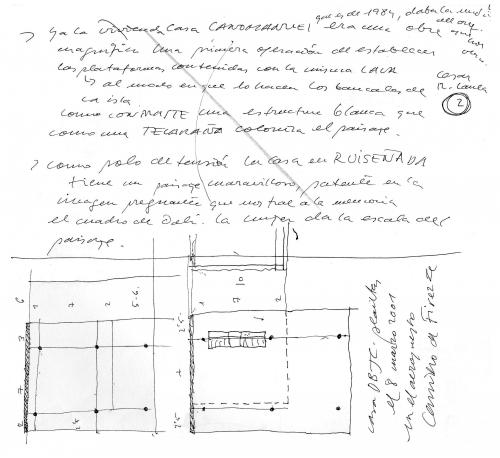 que es de 1984, daba la medida
> Ya la vivienda casa CANDAMANUEL era una obra
magnífica. Una primera operación de establecer
las plataformas contenidas con la misma LAVA
↳ al modo en que lo hacen los bancales de
La isla
César
M. Lava
2
como CONTRASTE una estructura blanca que
como una TELARAÑA coloniza el paisaje.
> Como polo de tensión la casa en RUISEÑADA
tiene un paisaje maravilloso, patente en la
imagen pregnante que nos trae a la memoria
el cuadro de Dalí. La mujer da la escala del
paisaje.
1 7 2 5-6
10
1 7 2
3 7 2
2'5 7 2'5
casa DBJC. planta,
el 8 marzo 2001
en el aeropuerto
camino de Firenze